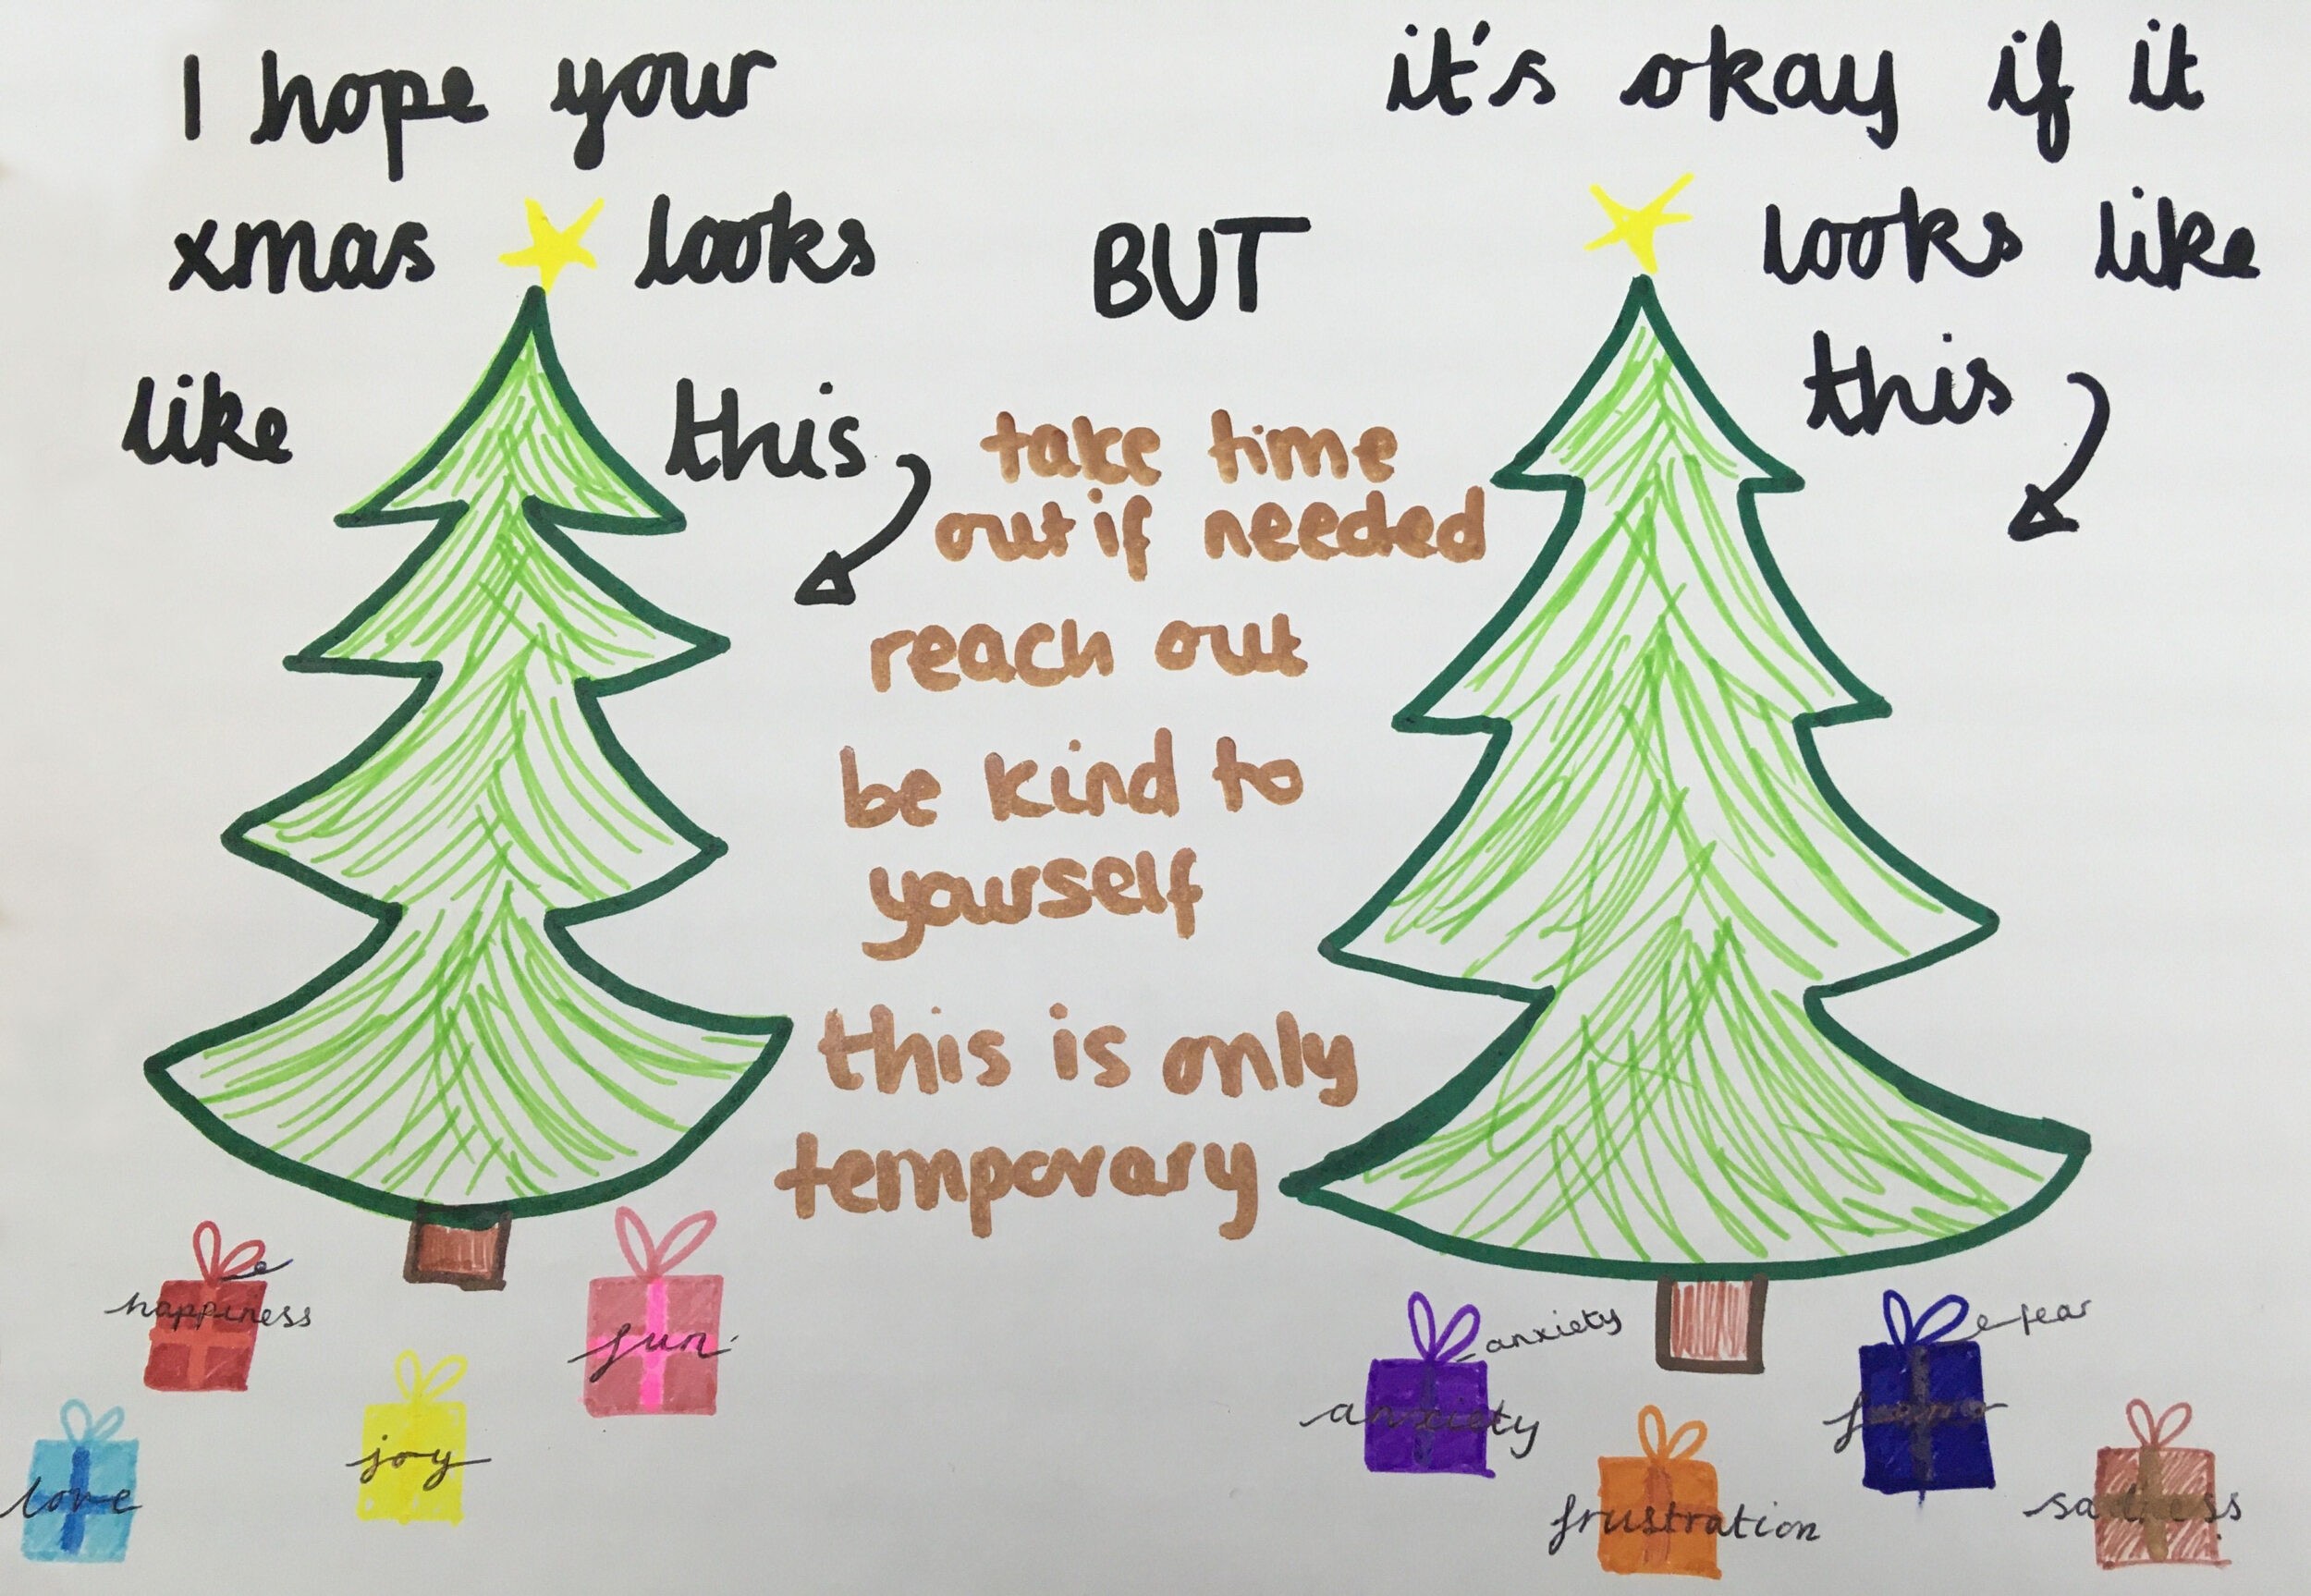 I hope your
xmas looks
like this
BUT
it's okay if it
looks like
this
take time
out if needed
reach out
be kind to
yourself
this is only
temporary
happiness
fun
love
joy
anxiety
anxiety
fear
fear
frustration
sadness